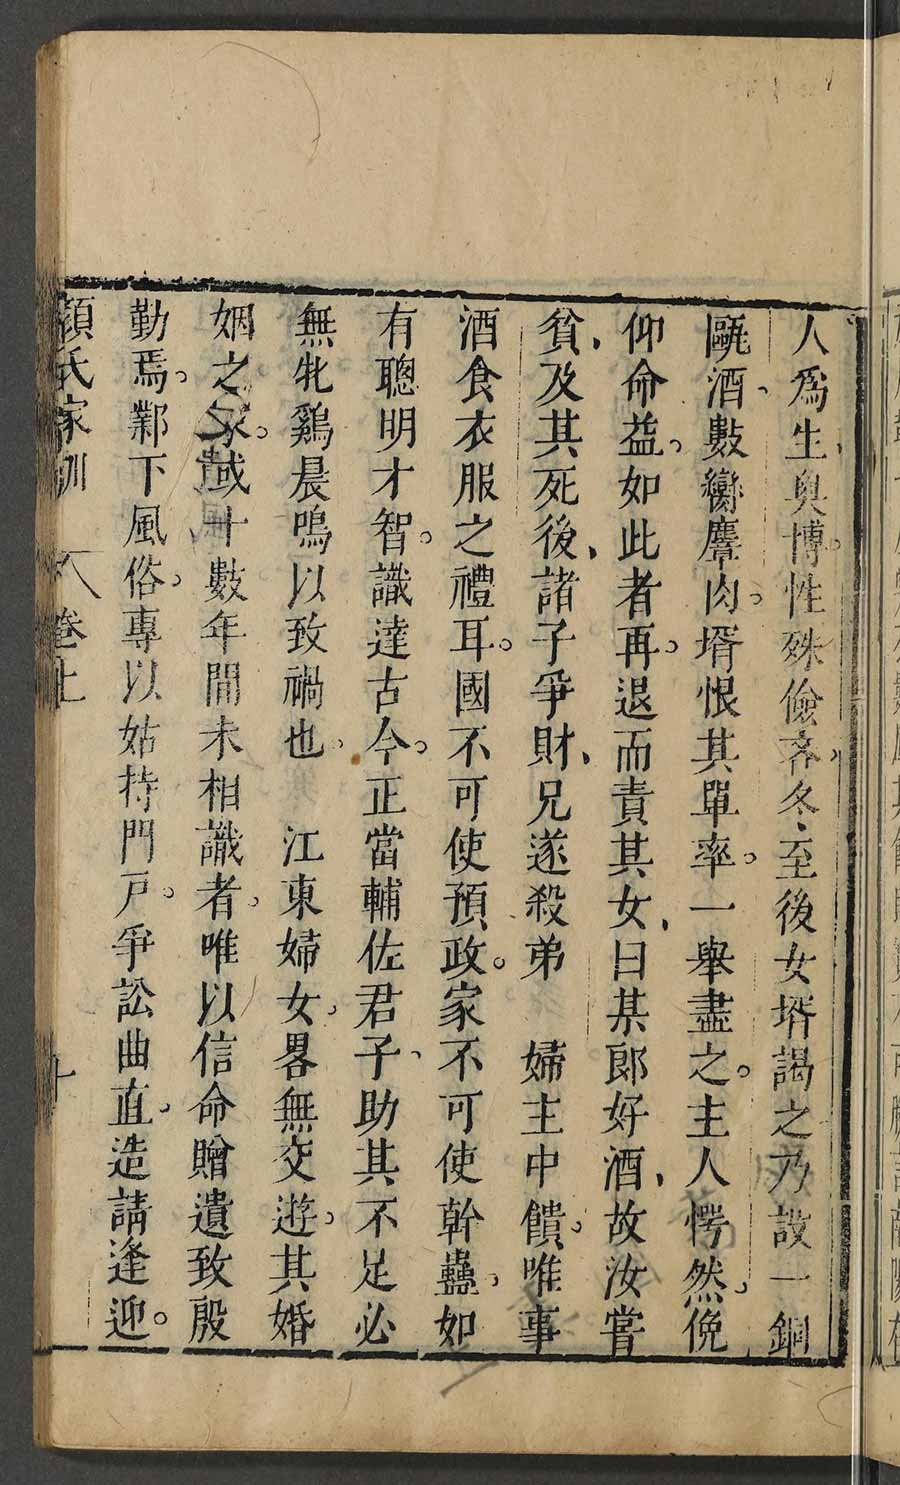 人爲生奧博性殊儉吝冬至後女壻謁之乃設一銅
甌酒數臠麞肉壻恨其單率一舉盡之主人愕然俛
仰命益如此者再退而責其女曰某郎好酒故汝嘗
貧及其死後諸子爭財兄遂殺弟　婦主中饋唯事
酒食衣服之禮耳國不可使預政家不可使幹蠱如
有聰明才智識達古今正當輔佐君子助其不足必
無牝鷄晨鳴以致禍也　江東婦女畧無交遊其婚
姻之家或十數年間未相識者唯以信命贈遺致殷
勤焉鄴下風俗專以姑持門戶爭訟曲直造請逢迎
顏氏家訓　卷上　十